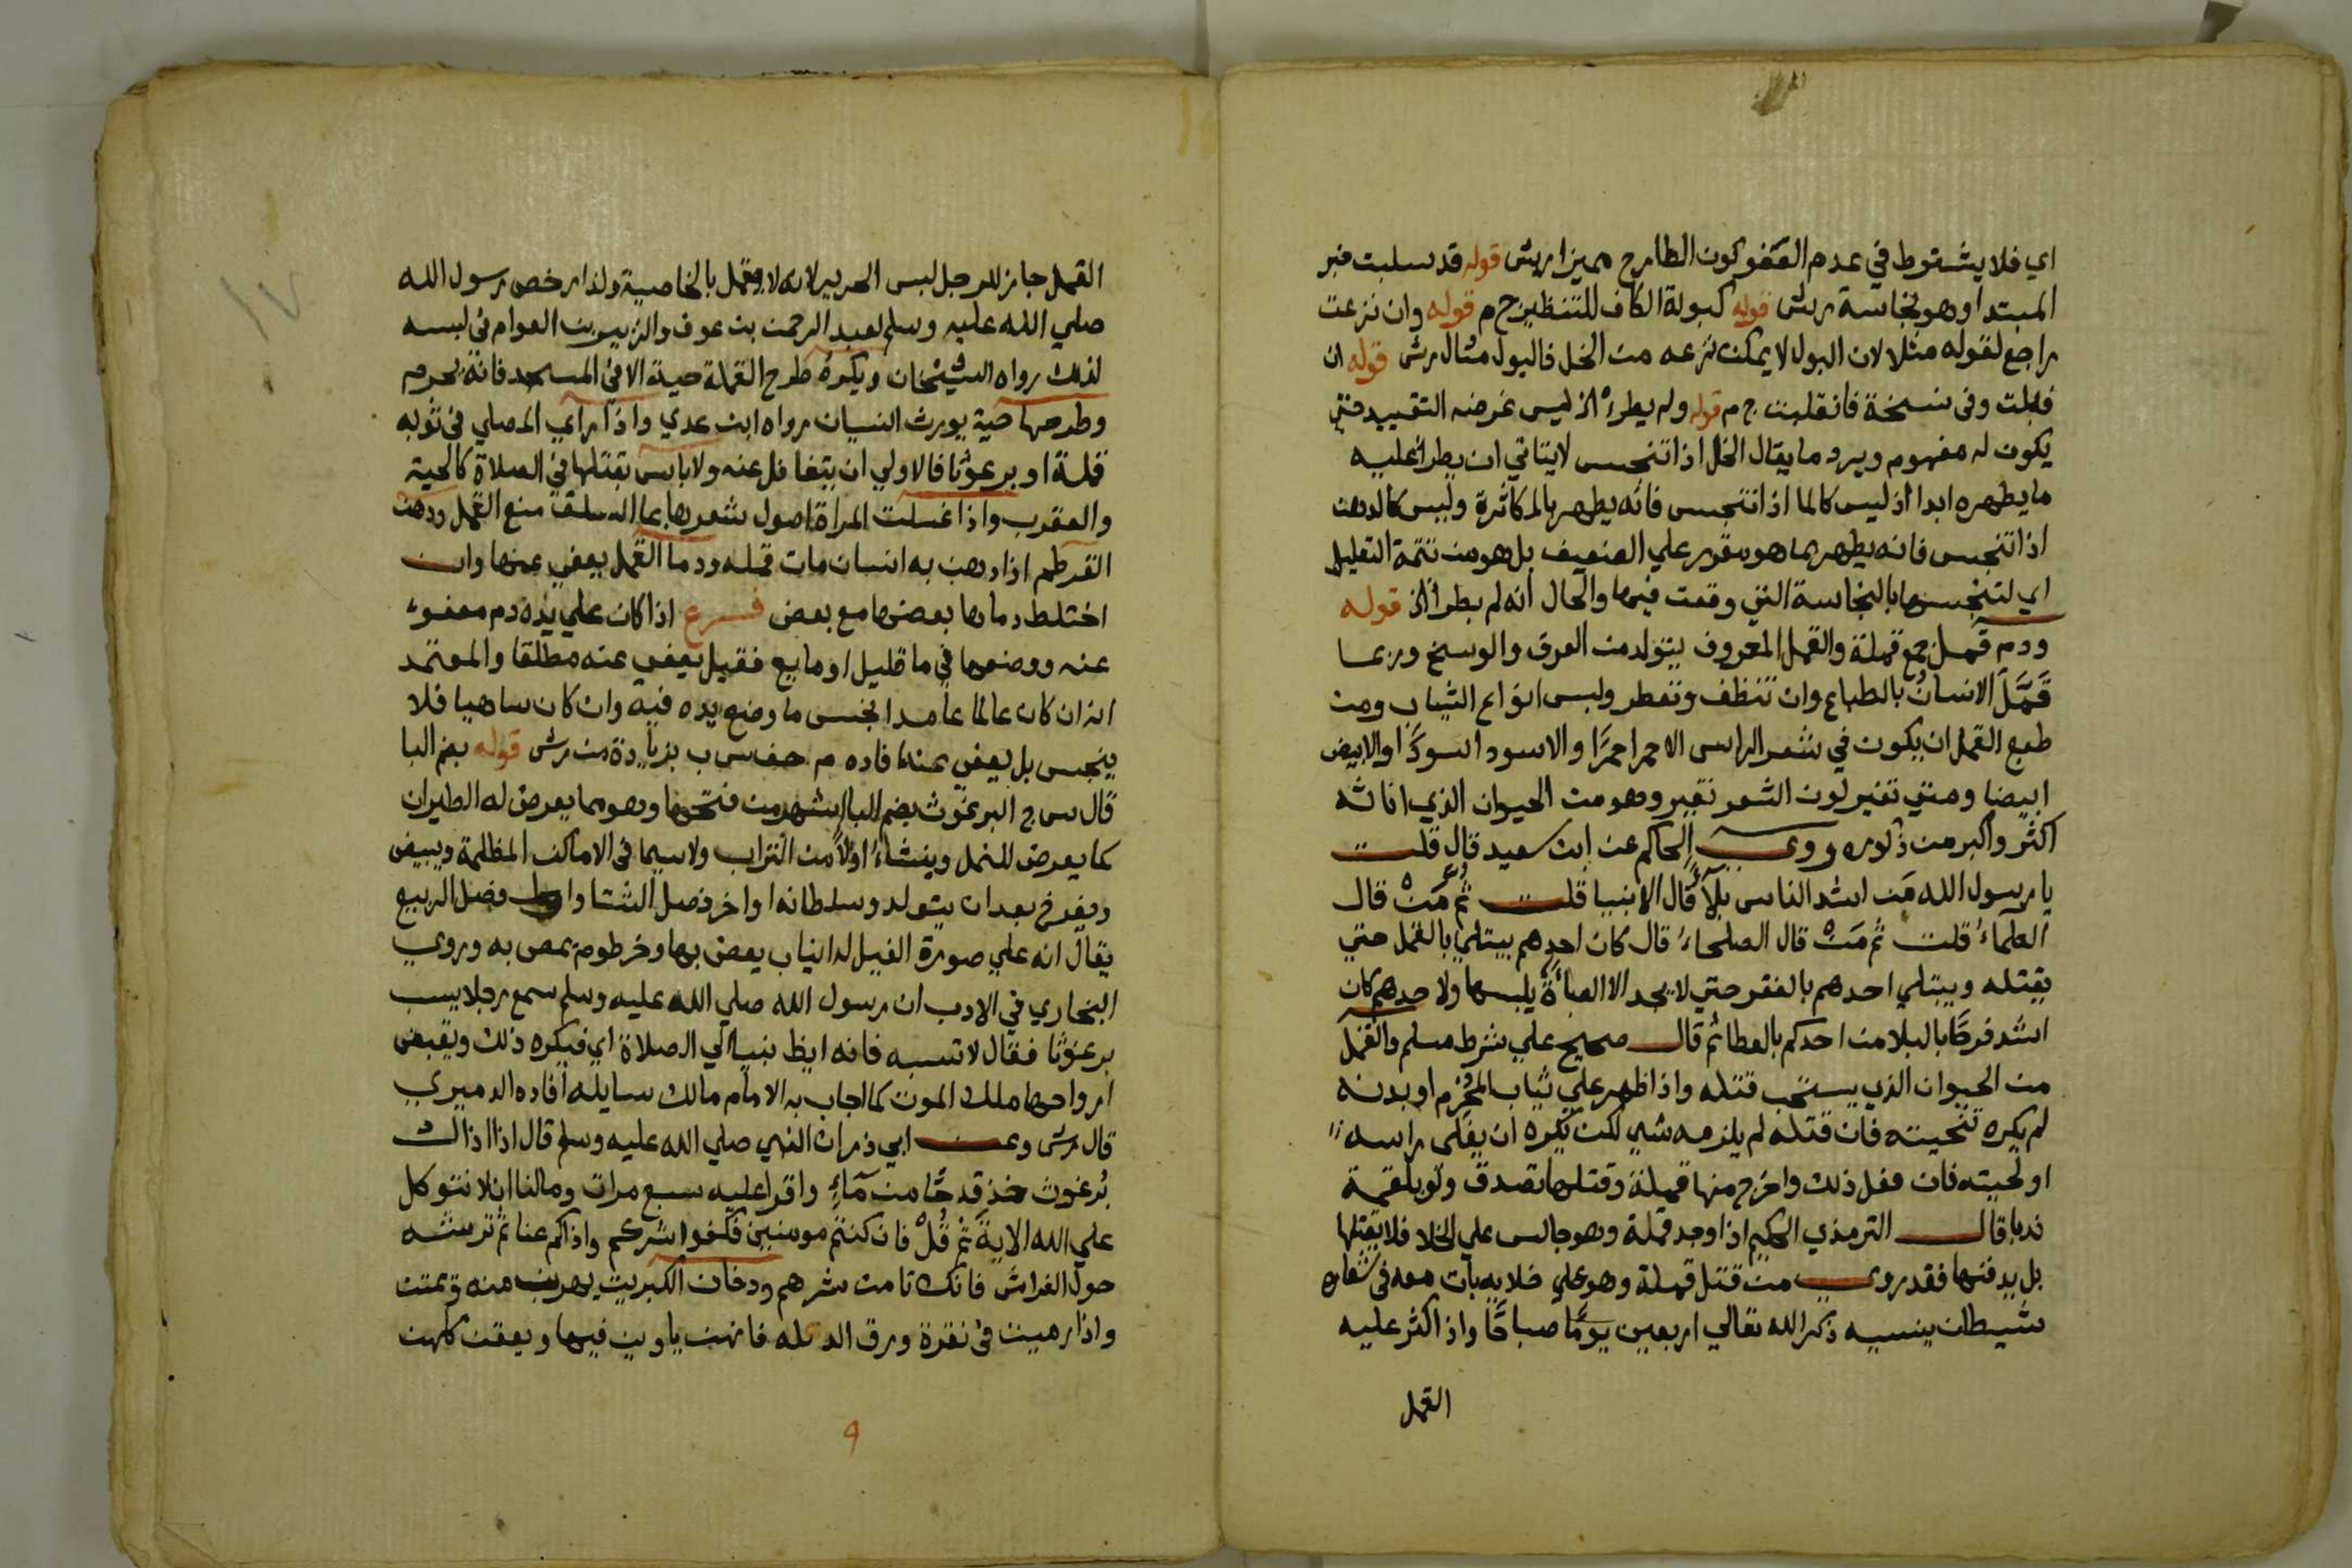 اي فلا يشترط في عدم العفو كون الطارح مميزا ارش قوله قد سلبت خبر
المبتدا وهو نجاسة رش قوله كبولة الكاف للتنظير ح م قوله وان نزعت
راجع لقوله مثلا لان البول لا يمكن نزعه من الخل فالبول مثال رش قوله ان
قبلت وفى نسخة فانقلبت ج م قوله ولم يطرا اذ ليس غرضه التقييد حتي
يكون له مفهوم ويرد ما يقال الخل اذا تنجس لا يتاتي ان يطرا عليه
ما يطهره ابدا اذ ليس كالما اذا تنجس فانه يطهر بالمكاثرة وليس كالدهن
اذا تنجس فانه يطهر بما هو مقرر علي الضعيف بل هو من تتمة التعليل
اي لتنجسها بالنجاسة التي وقعت فيها والحال انه لم يطرا الخ قوله
ودم قمل جمع قملة والقمل المعروف يتولد من العرق والوسخ وربما
قَمَّل الانسانُ بالطباع وان تنظف وتعطر ولبس انواع الثياب ومن
طبع القمل ان يكون في شعر الراس الاحمر احمرًا والاسود اسودًا والابيض
ابيضا ومتي تغير لون الشعر تغير وهو من الحيوان الذي اناثه
اكثر واكبر من ذكوره وروي الحاكم عن ابن سعيد قال قلت
يا رسول الله مَن اشد الناس بلاءً قال الانبيا قلت ثم مَنْ قال
العلماءُ قلت ثم مَنْ قال الصلحاءُ قال كان احدهم يبتلي بالقمل حتي
يقتله ويبتلي احدهم بالفقر حتي لا يجد الا العباءة يلبسها ولاحدهم كان
اشد فرحًا بالبلا من احدكم بالعطا ثم قال صحيح علي شرط مسلم والقمل
من الحيوان الذي يستحب قتله واذا ظهر علي ثياب المُحْرِم او بدنه
لم يكره تنحيته فان قتله لم يلزمه شي لكن يكره ان يفلى راسه
او لحيته فان فعل ذلك واخرج منها قملة وقتلها تصدق ولو بلقمة
ندبا قال الترمذي الحكيم اذا وجد قملة وهو جالس علي الخلا فلا يقتلها
بل يدفنها فقد روي من قتل قملة وهو علي خلايه بات معه فى شعاره
شيطان ينسيه ذكر الله تعالي اربعين يومًا صباحًا واذا اكثر عليه
القمل
القمل جاز للرجل لبس الحرير لانه لا يقمل بالخاصية ولذا رخص رسول الله
صلي الله عليه وسلم لعبد الرحمن بن عوف والزبير بن العوام في لبسه
لذلك رواه الشيخان ويكرهُ طرح القملة حية الا في المسجد فانه يحرم
وطرحها حية يورث النسيان رواه ابن عدي واذا راي المصلي في ثوبه
قملة او برغوثا فالاولي ان يتغافل عنه ولا باس بقتلها في الصلاة كالحية
والعقرب واذا غسلت المراة اصول شعرها بما السلق منع القمل ودهن
القرطم اذا دهن به انسان مات قمله ودما القمل يعفي عنها وان
اختلط دماوها بعضها مع بعض فسرع اذا كان علي يده دم معفو
عنه ووضعها في ما قليل او مايع فقيل يعفي عنه مطلقا والمعتمد
انه ان كان عالما عامدا نجس ما وضع يده فيه وان كان ساهيا فلا
ينجس بل يعفي عنه افاده م حف س ب بزيادة من رش قوله بضم البا
قال س ج البرغوث بضم البا اشهر من فتحها وهو مما يعرض له الطيران
كما يعرض للنمل وينشاءُ اولًا من التراب ولا سيما فى الاماكن المظلمة ويبيض
ويفرخ بعد ان يتولد وسلطانه اواخر فصل الشتا واول فصل الربيع
يقال انه علي صورة الفيل له انياب يعض بها وخرطوم يمص به وروي
البخاري في الادب ان رسول الله صلي الله عليه وسلم سمع رجلا يسب
برغوثا فقال لا تسبه فانه ايظ نبيا الي الصلاة اي فيكره ذلك ويقبض
ارواحها ملك الموت كما اجاب به الامام مالك سايله افاده الدميري
قال رش وعن ابي ذر ان النبي صلي الله عليه وسلم قال اذا اذاك
بُرغوث خذ قدحًا من مآءٍ واقرا عليه سبع مرات ومالنا ان لا نتوكل
علي الله الاية ثم قُلْ فان كنتم مومنين فكفوا شركم واذاكم عنا ثم ترشه
حول الفراش فانك تامن شرهم ودخان الكبريت يهربن منه ويمتن
واذا رميت فى نقرة ورق الدفله فانهن ياوين فيها ويعقن كلهن
9
١٧